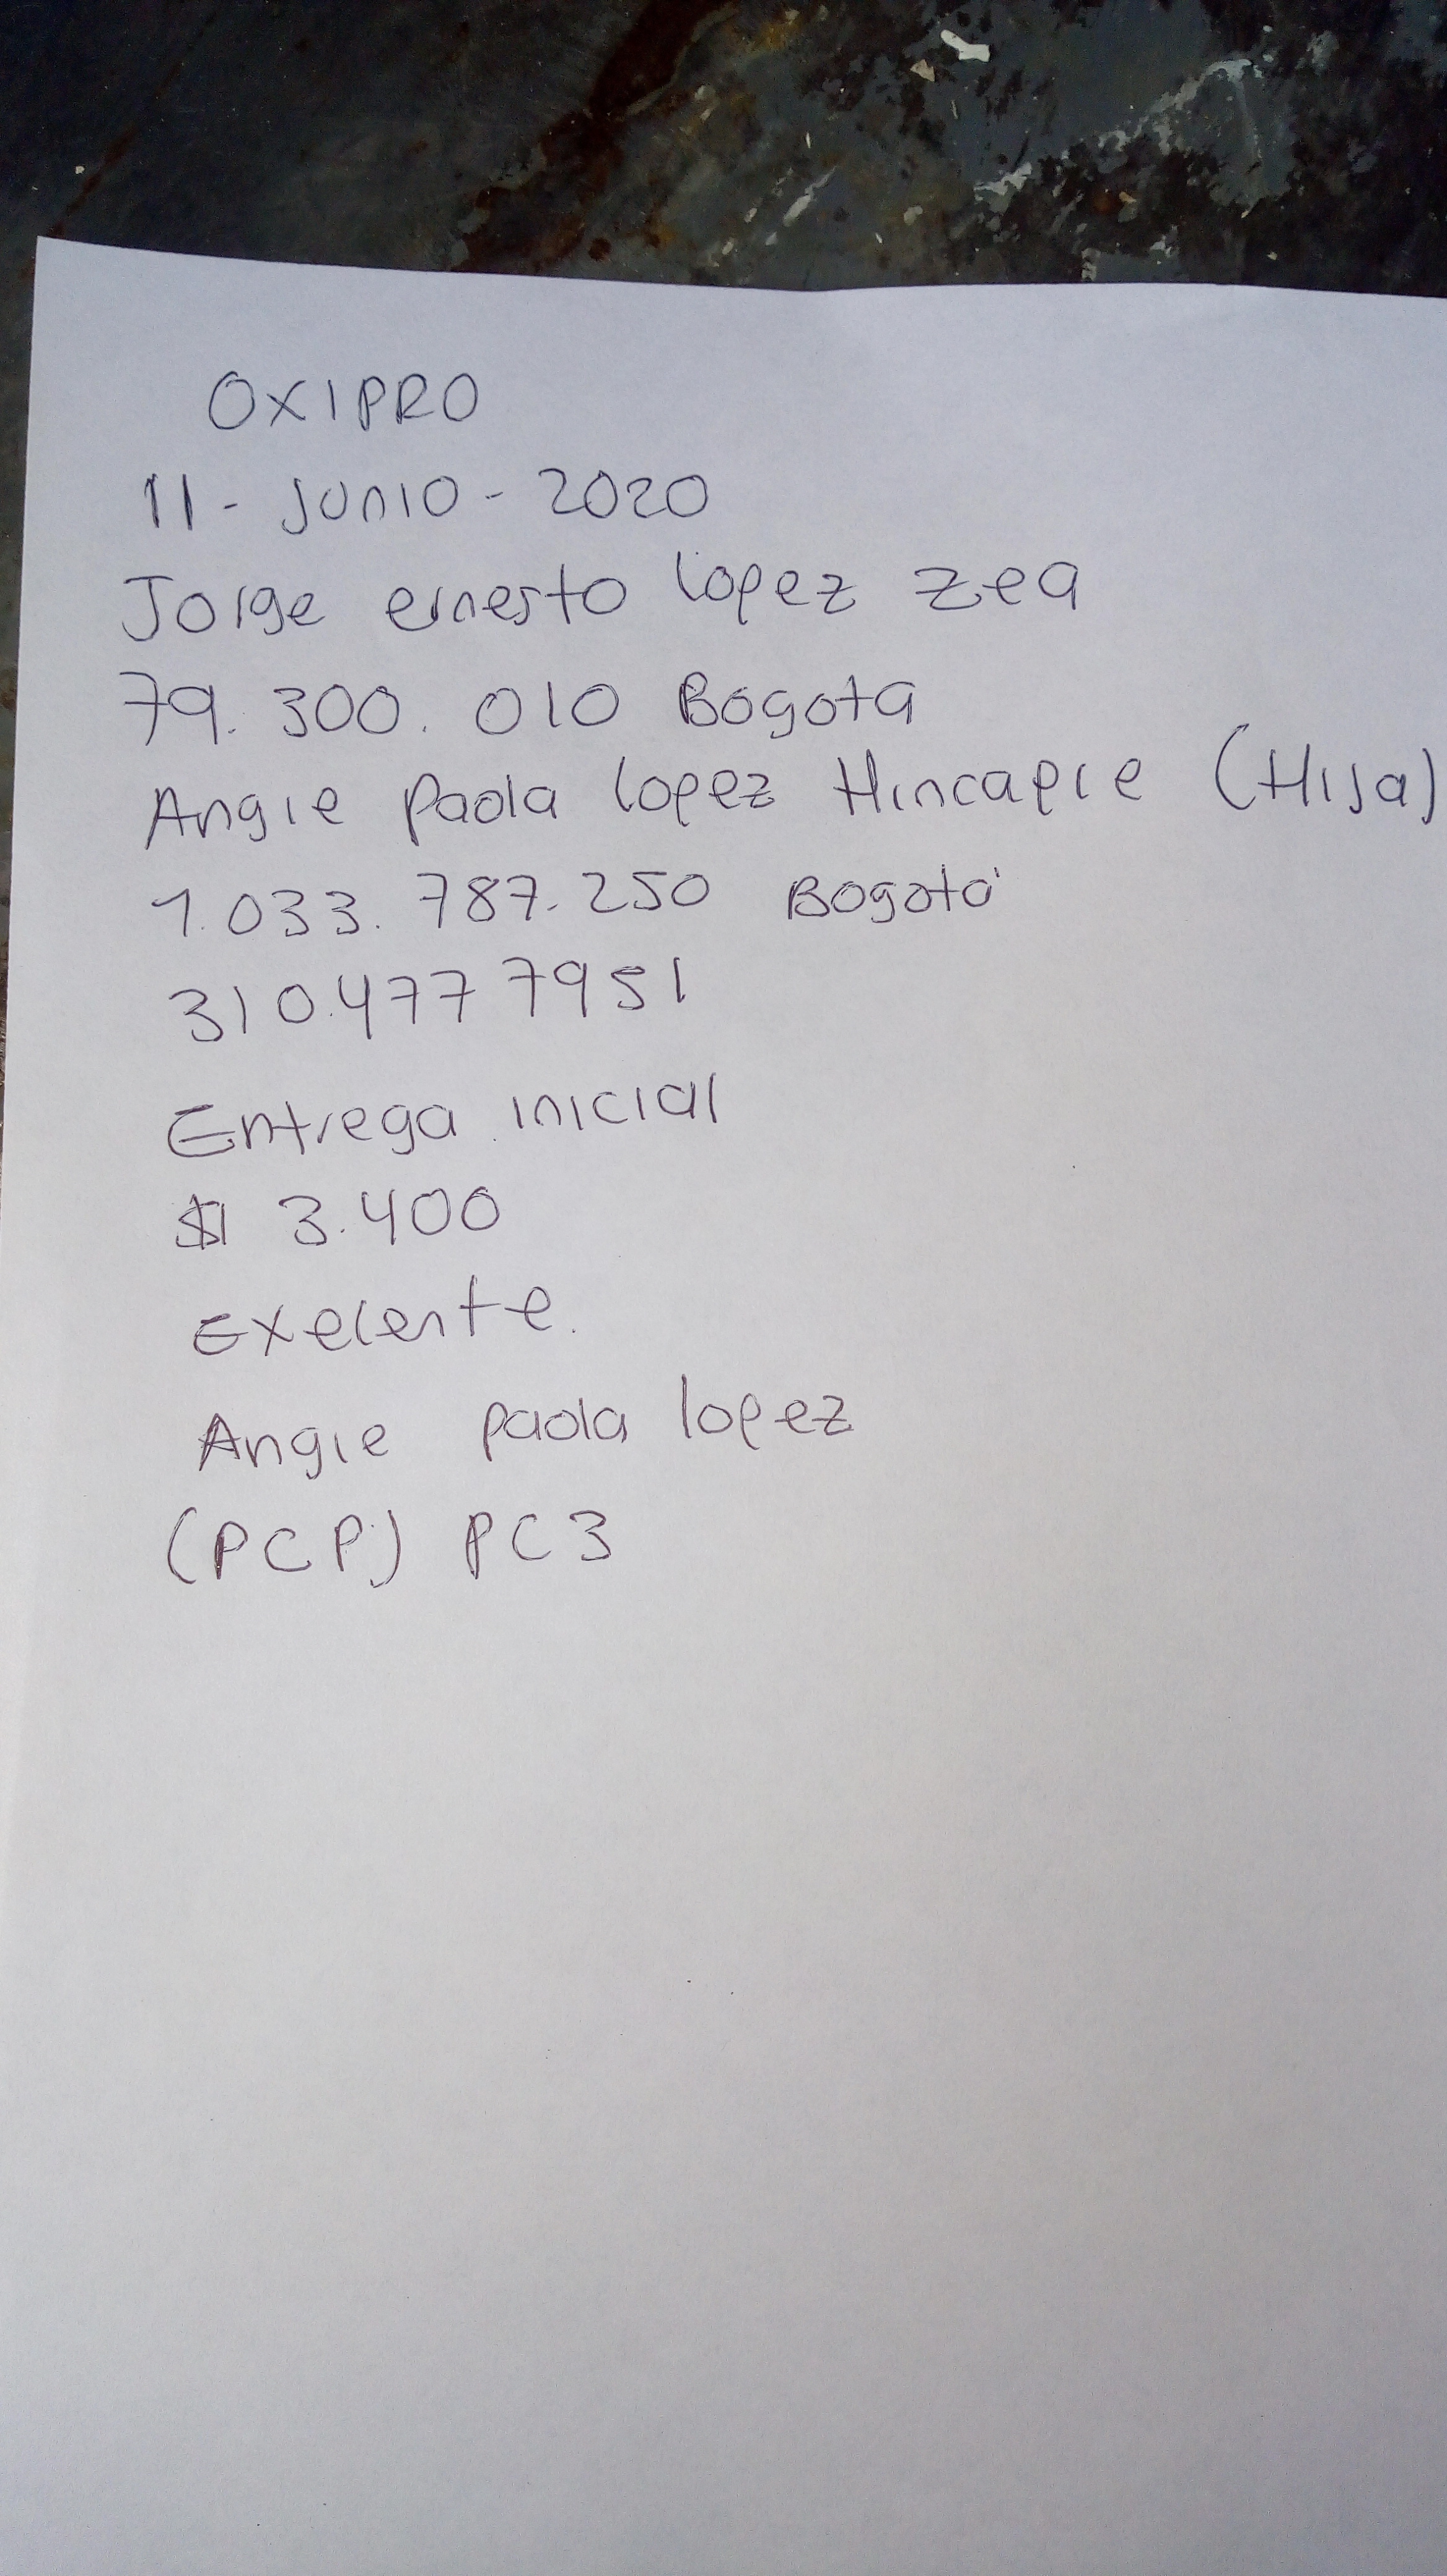 OXIPRO
11 - Junio - 2020
Jorge ernesto lopez zea
79. 300. 010 Bogota
Angie paola lopez Hincapie (Hija)
1.033. 787. 250 Bogotá
310.477 7951
Entrega inicial
$ 3.400
Exelente.
Angie paola lopez
(PCP) PC3